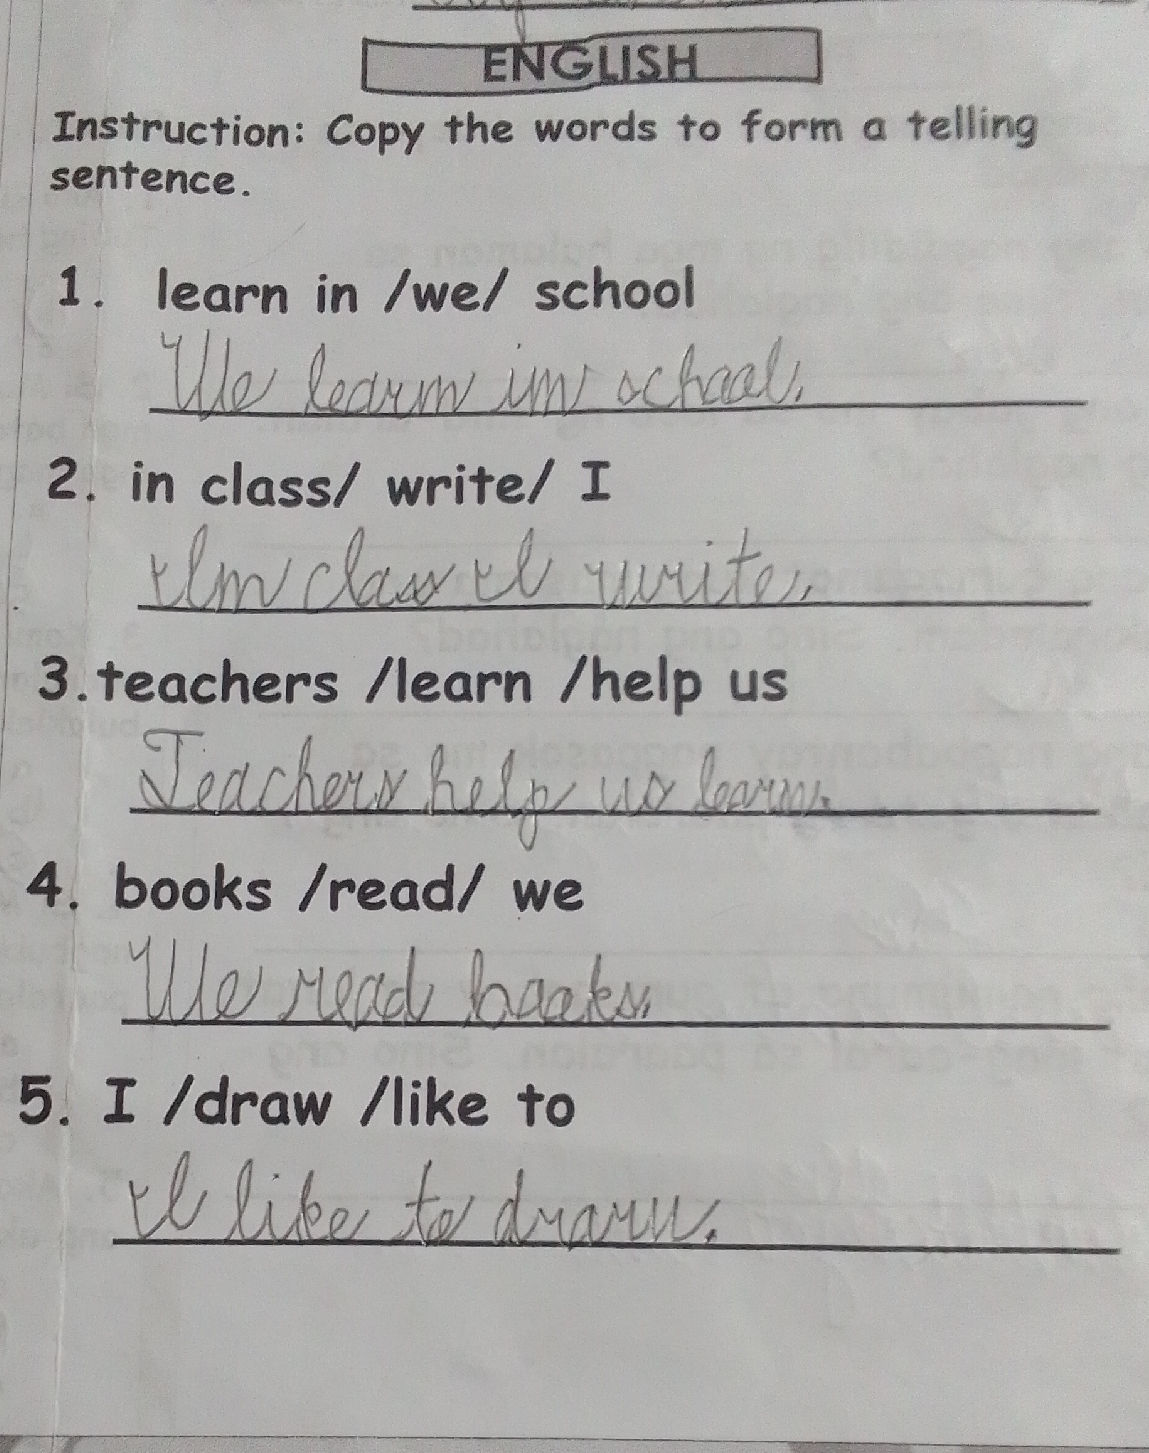 ENGLISH
Instruction: Copy the words to form a telling
sentence.
1. learn in /we/ school
We learn in school.
2. in class/ write/ I
In class I write.
3. teachers /learn /help us
Teachers help us learn.
4. books /read/ we
We read books.
5. I /draw /like to
I like to draw.